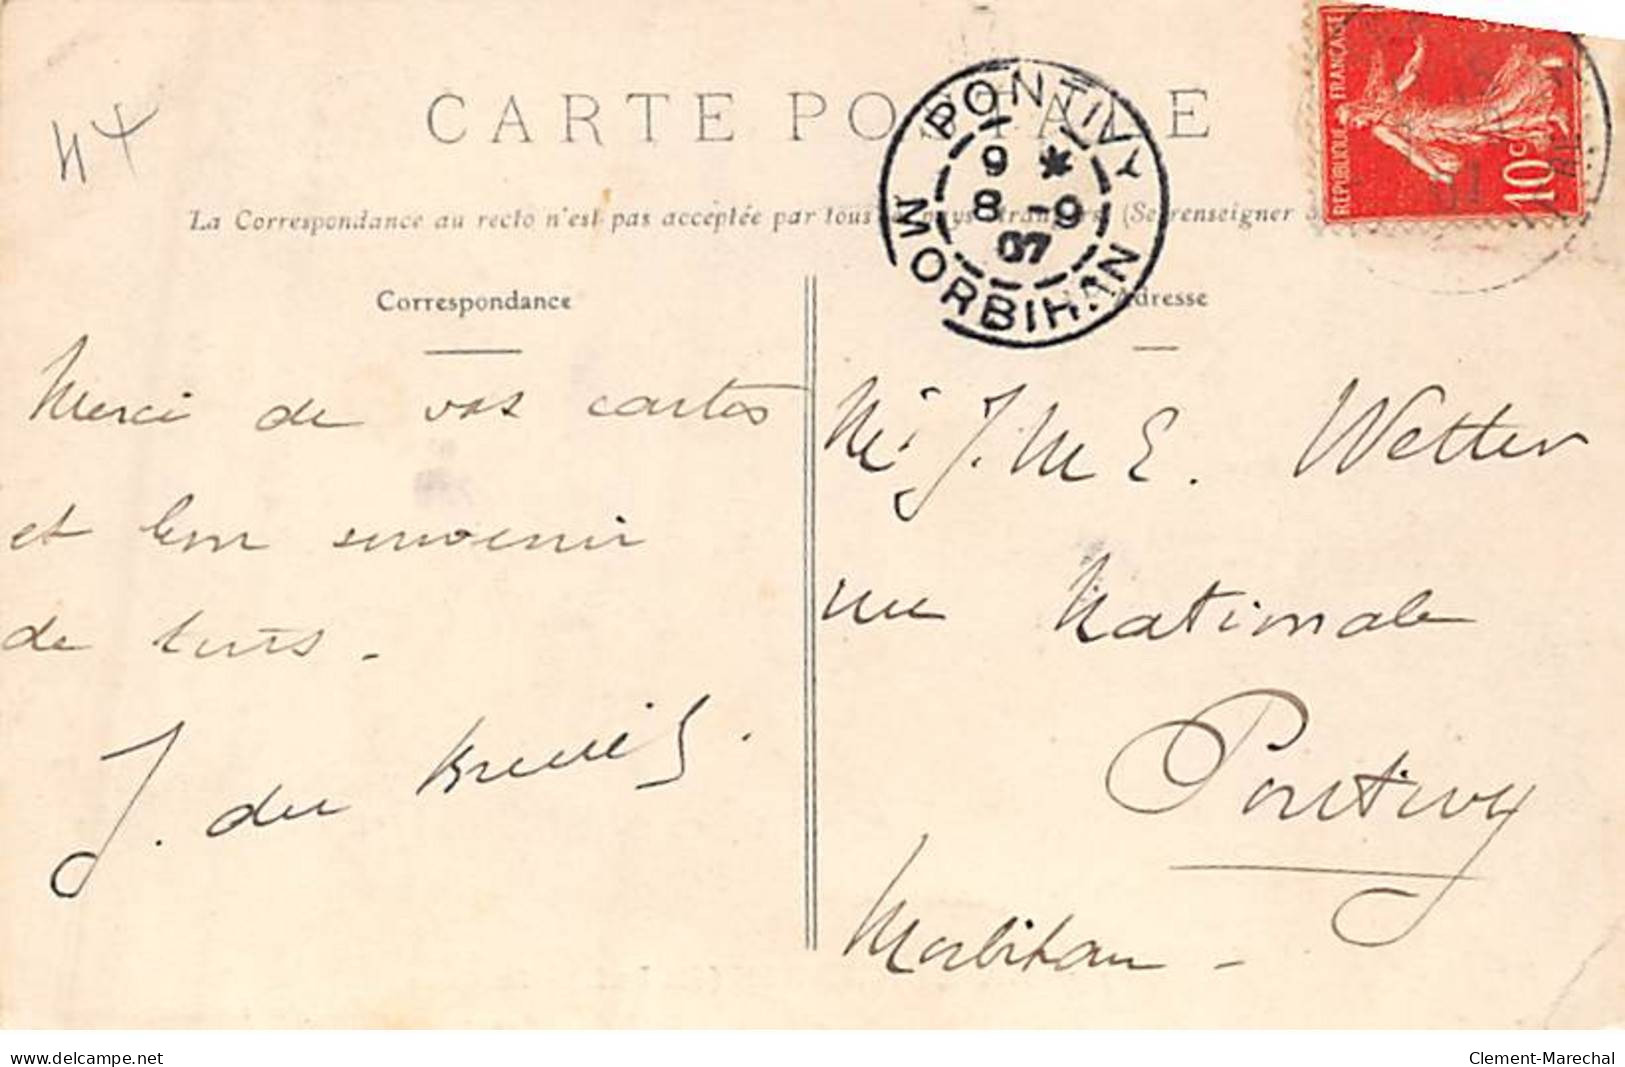 CARTE POSTALE
La Correspondance au recto n'est pas acceptée par tous pays étrangers (Se renseigner
Correspondance
Adresse
PONTIVY
9 *
8 -9
07
MORBIHAN
REPUBLIQUE FRANÇAISE
10c
Merci de vos cartes
et bon souvenir
de tous.
J. du
J. M. E. Wetter
rue Nationale
Pontivy
Morbihan -
www.delcampe.net
Clement-Marechal